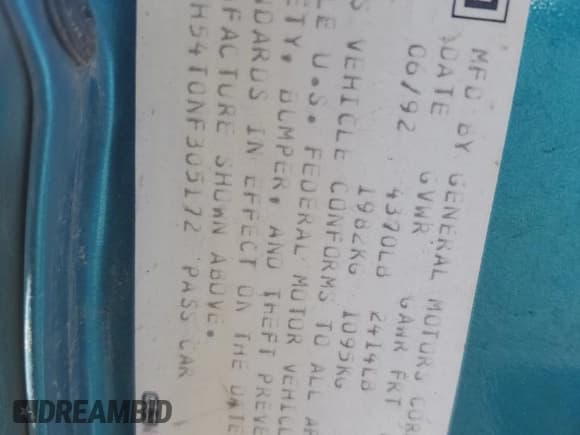 MFD BY GENERAL MOTORS COR
DATE GVWR GAWR FRT
06/92 4370LB 2414LB
1982KG 1095KG
VEHICLE CONFORMS TO ALL
U.S. FEDERAL MOTOR VEHICL
BUMPER, AND THEFT PREVE
IN EFFECT ON THE DATE
SHOWN ABOVE.
H54T0NF305172 PASS CAR
DREAMBID